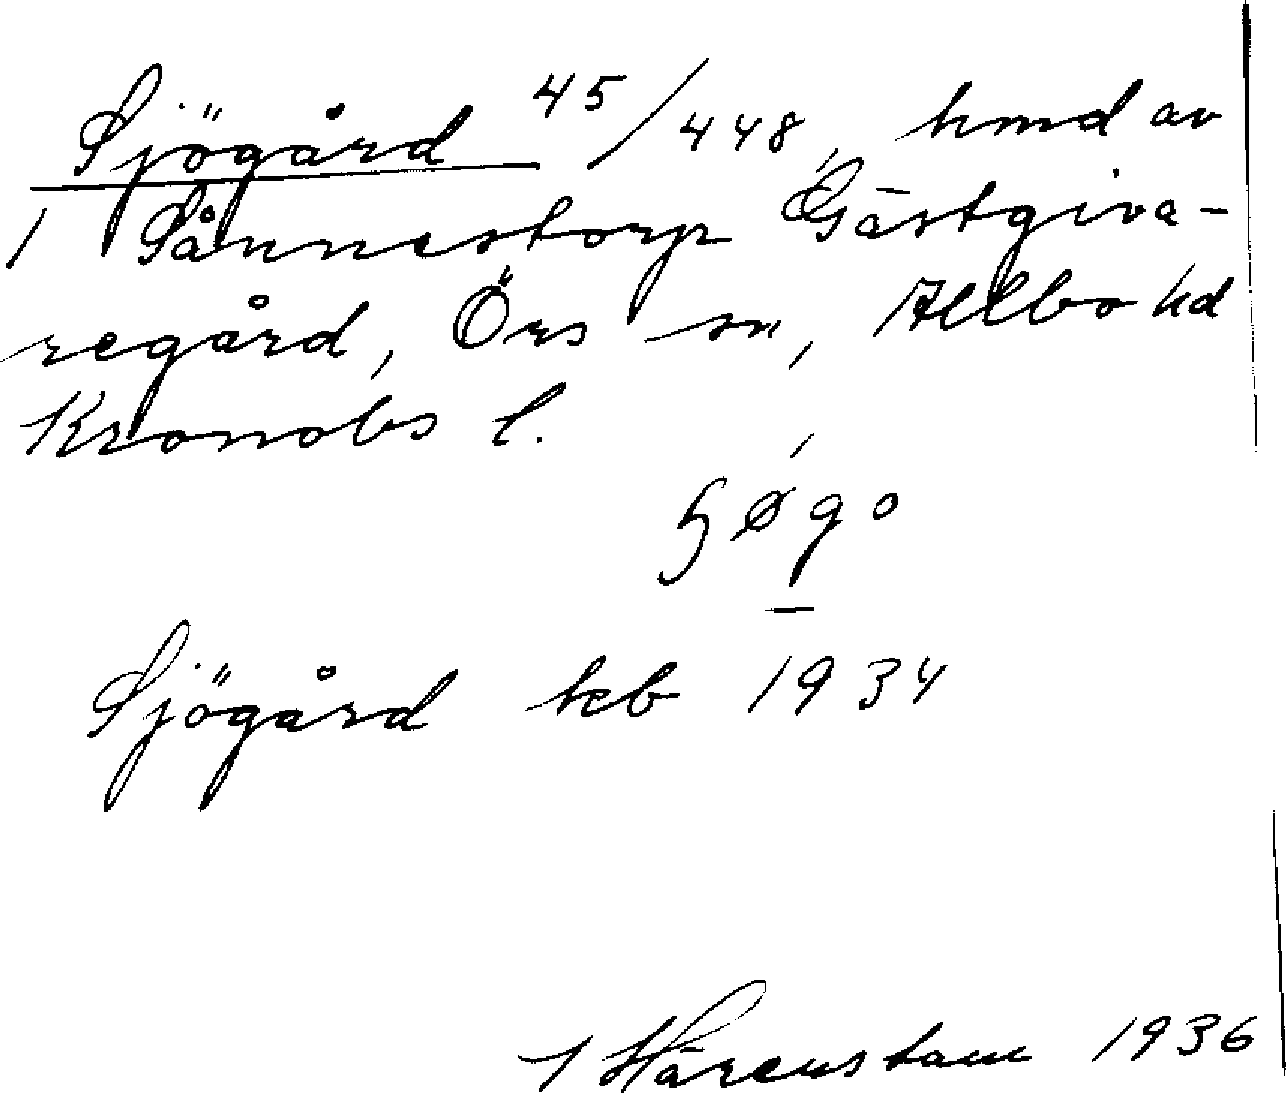 Sjögård 45/448, hmd av
1 Sånnestorp Gästgiva-
regård, Örs sn, Allbo hd
Kronobs l.
Sjögård keb 1934
Härenstam 1936